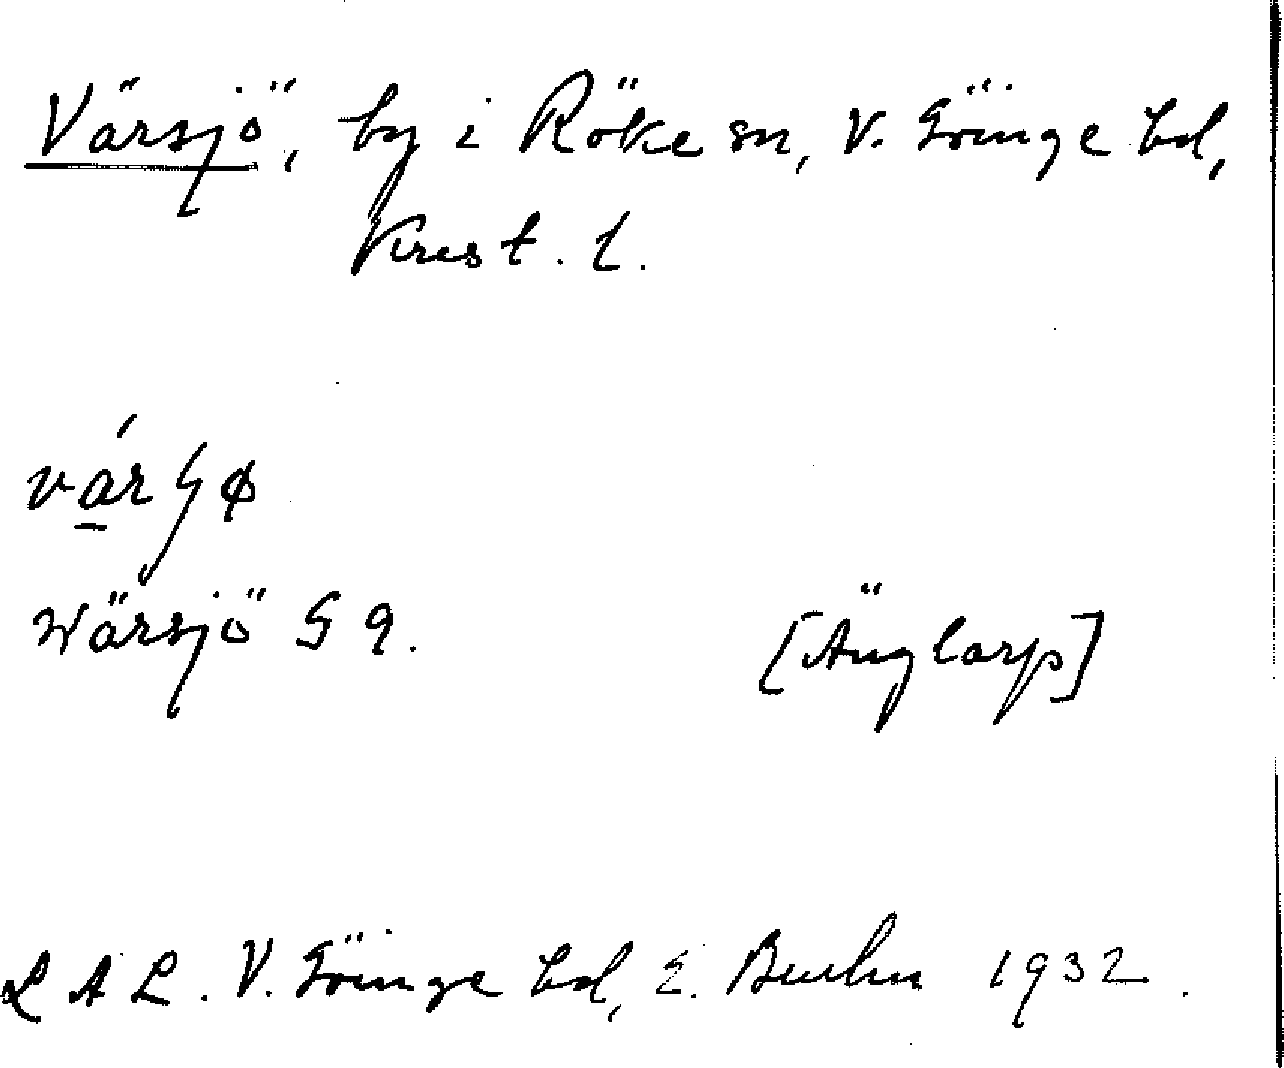 Värsjö, by i Röke sn, V. Göinge hd,
Krist. l.
Wärsjö G 9. [Änglarp]
L A L. V. Göinge hd, E. Bruhn 1932.